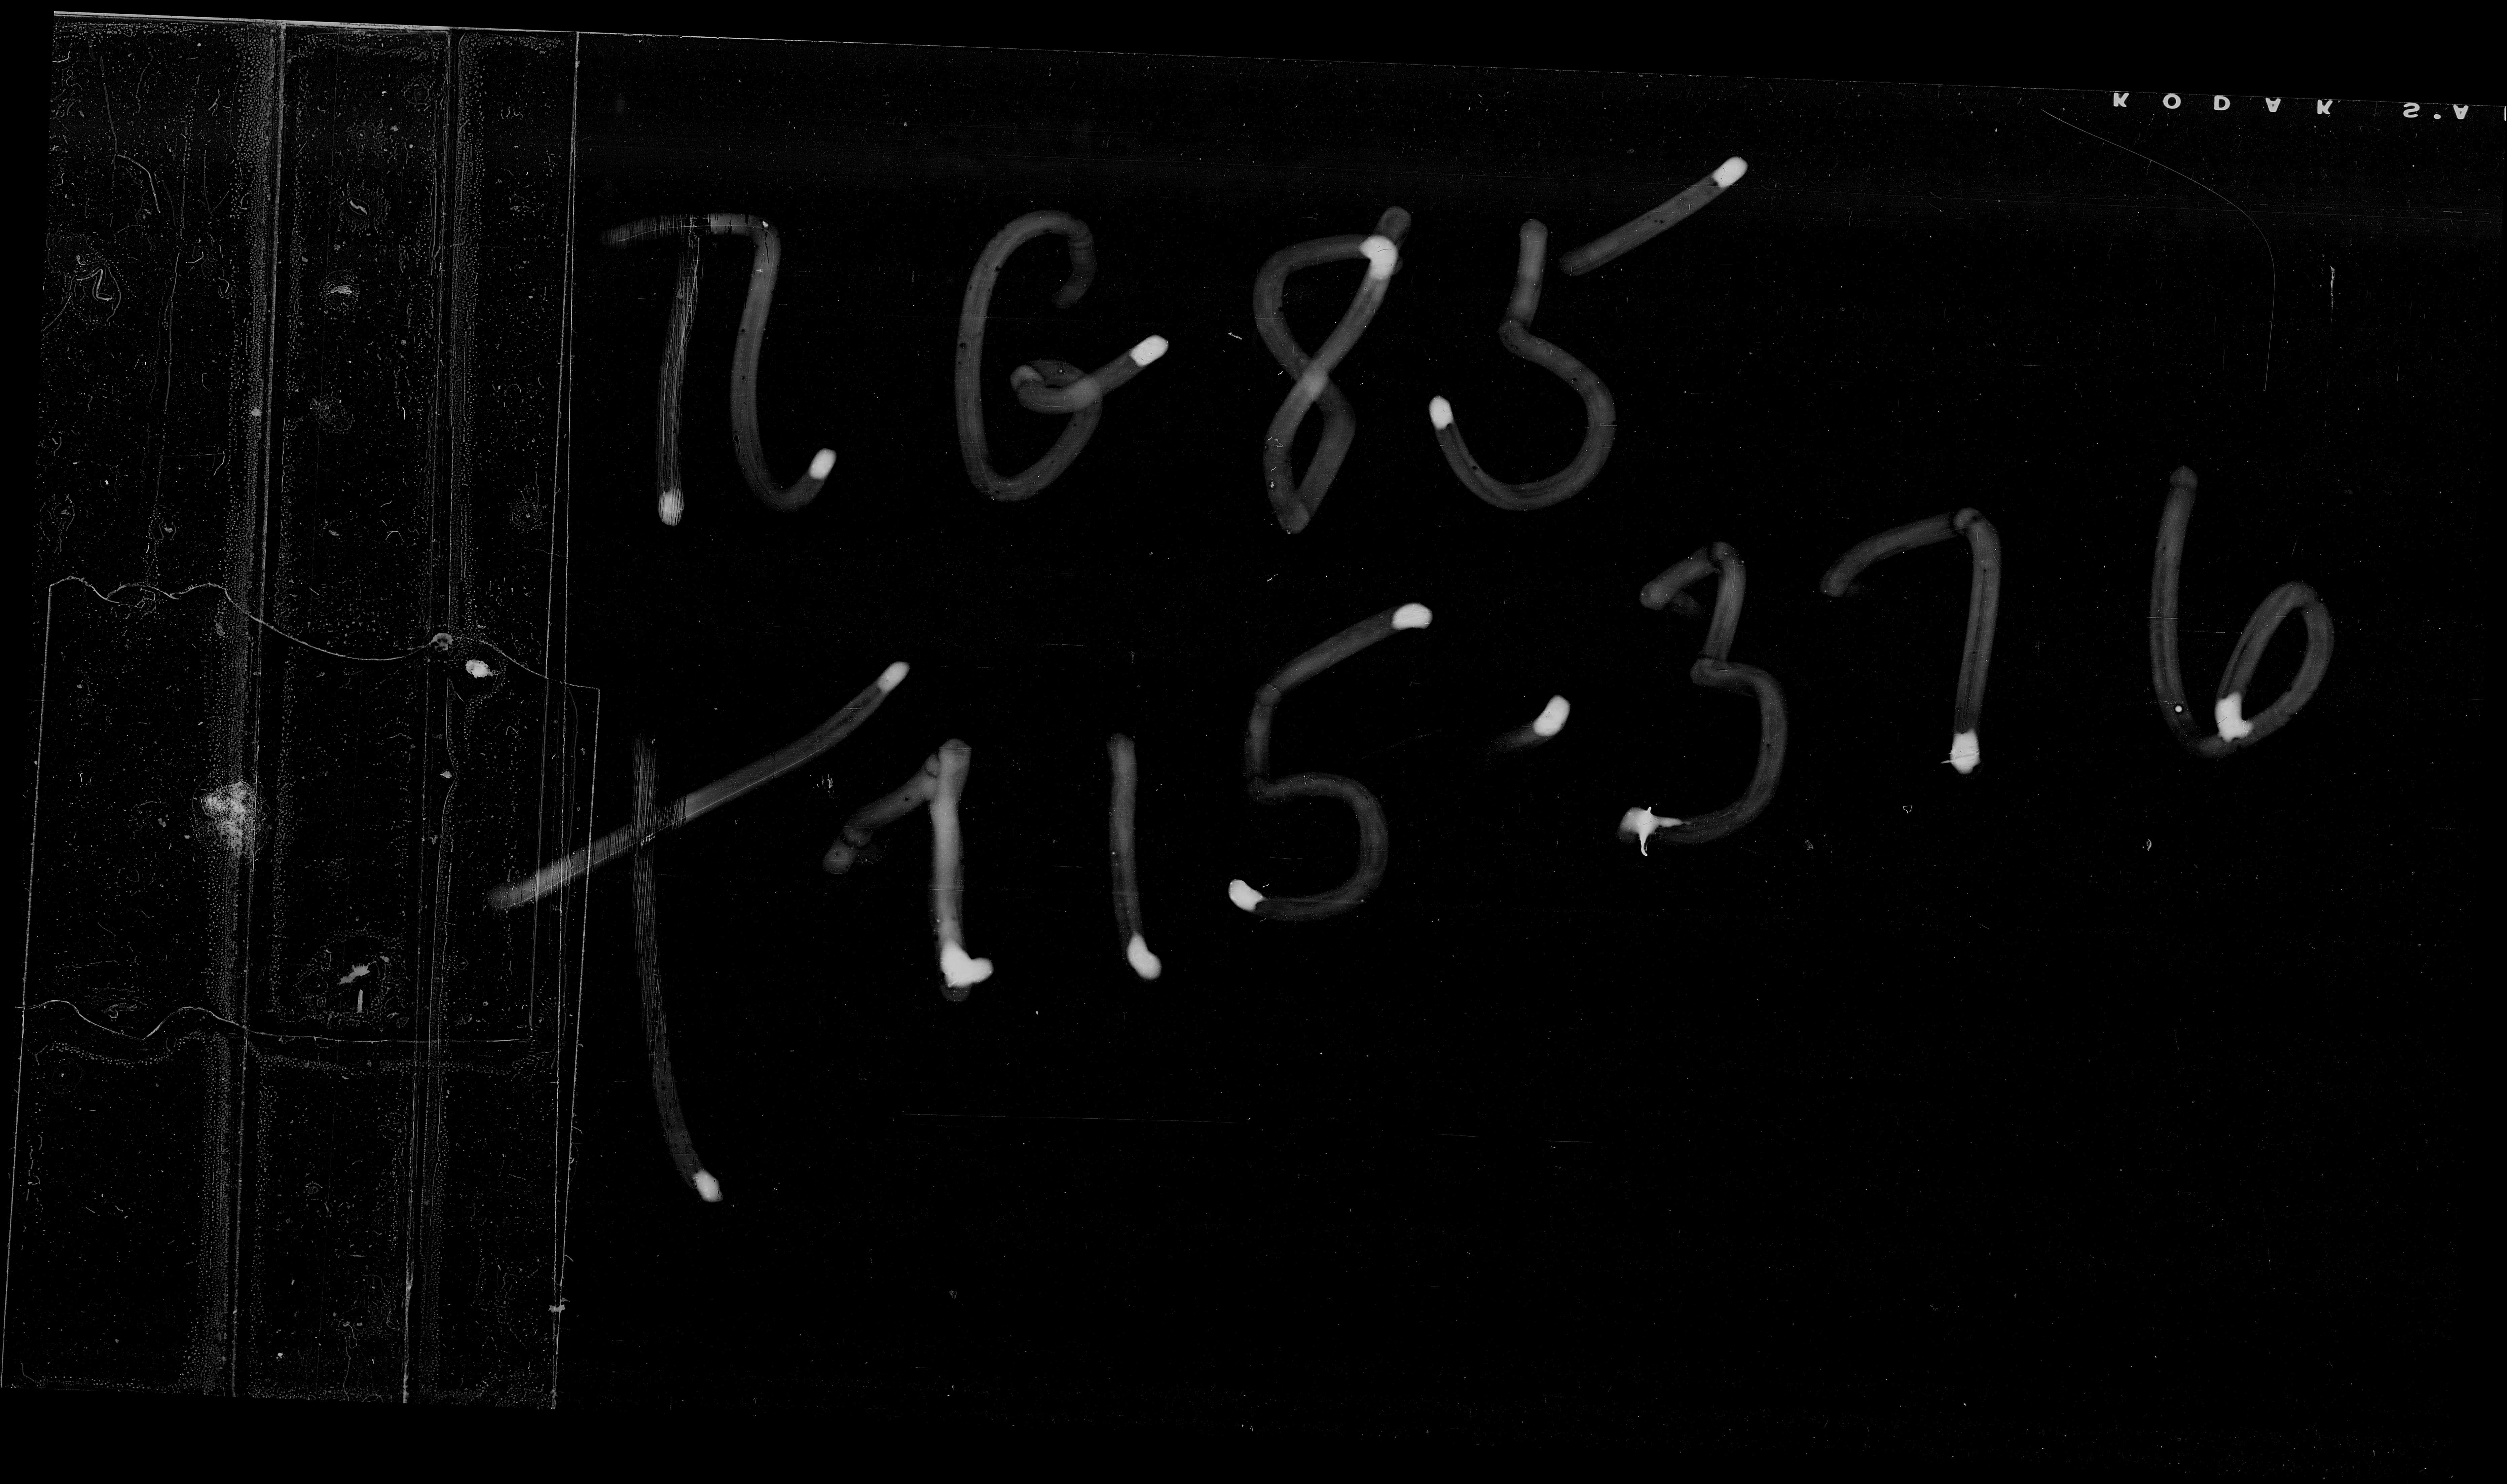 KODAK S.A
П G 8 5
T 115-376